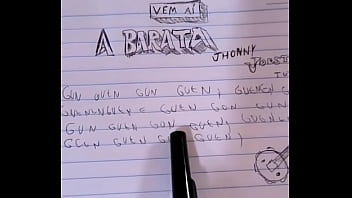 VEM AÍ
A BARATA
JHONNY
GUN GUEN GUN GUEN, GUENGU G
GUENENGUEN E GUEN GON GUN
GUN GUEN GON GUEN, GUENGU
GCEN GUEN GU GUEN,